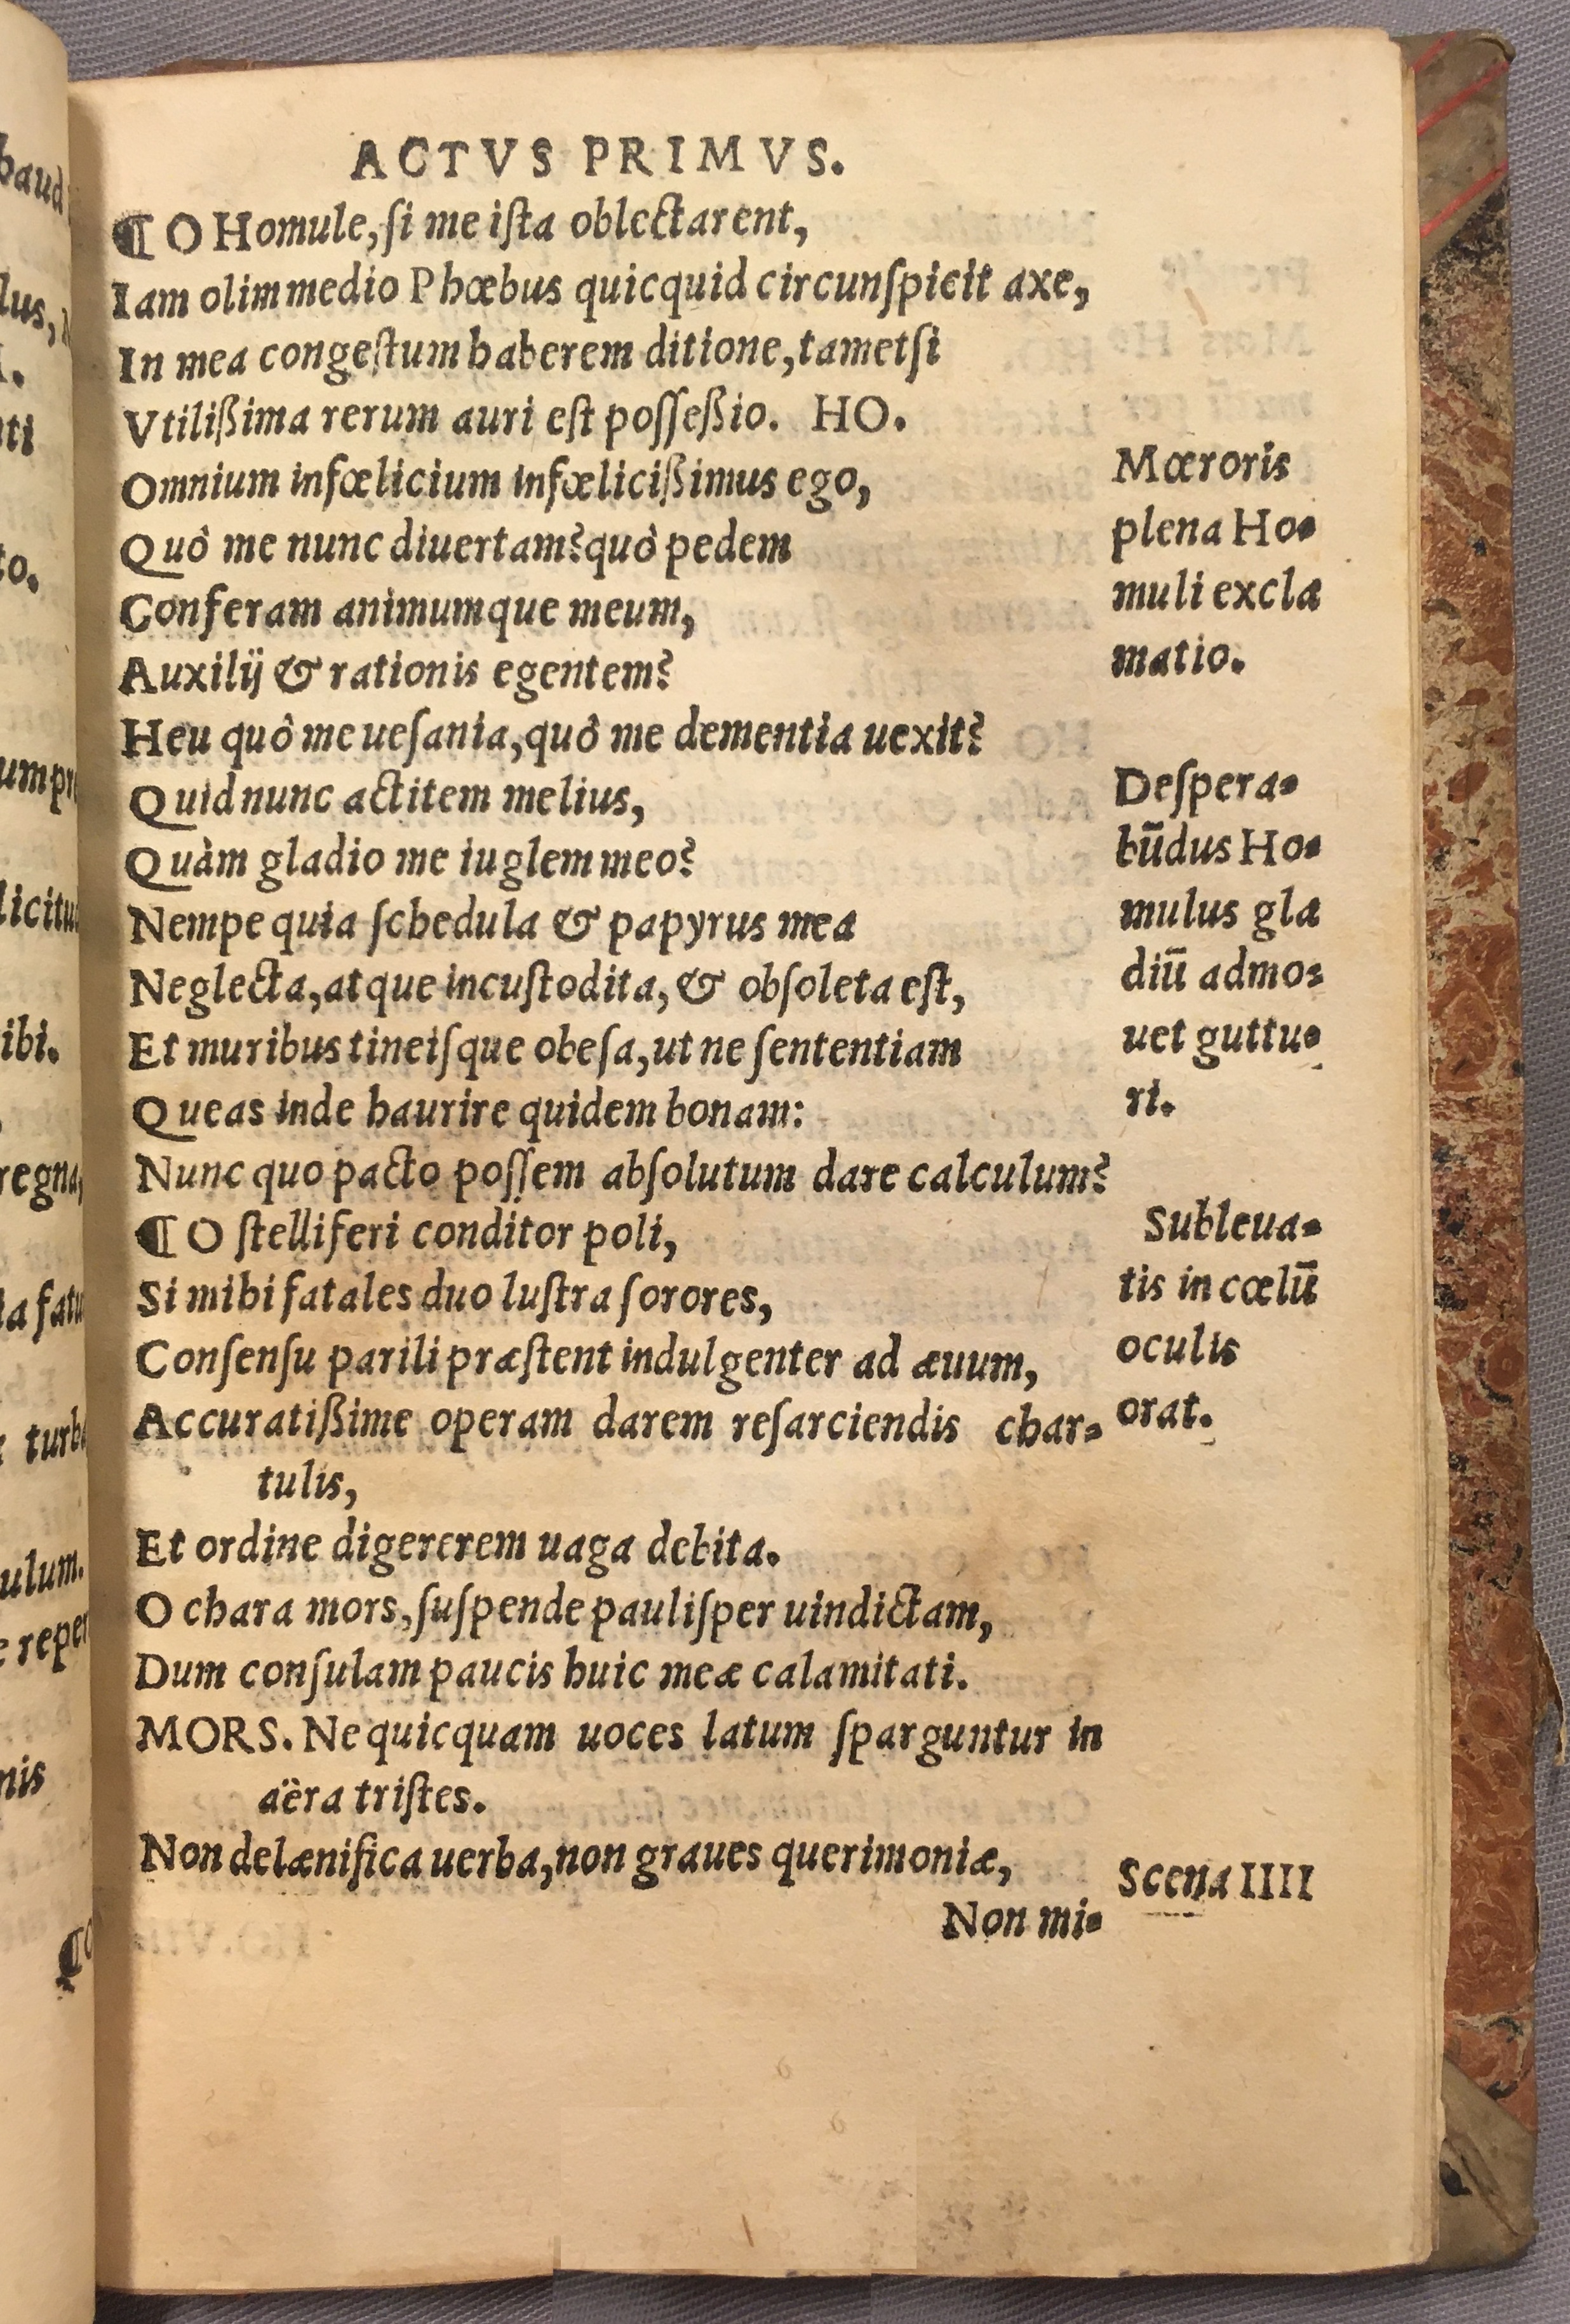 ACTVS PRIMVS.
¶ O Homule, ſi me iſta oblectarent,
Iam olim medio Phœbus quicquid circunſpicit axe,
In mea congeſtum haberem ditione, tametſi
Vtilißima rerum auri eſt poſſeßio. HO.
Omnium infœlicium infœlicißimus ego,
Quò me nunc diuertam? quò pedem
Conferam animumque meum,
Auxilij & rationis egentem?
Heu quò me ueſania, quò me dementia uexit?
Quid nunc actitem melius,
Quàm gladio me iuglem meo?
Nempe quia ſchedula & papyrus mea
Neglecta, atque incuſtodita, & obſoleta eſt,
Et muribus tineiſque obeſa, ut ne ſententiam
Queas inde haurire quidem bonam:
Nunc quo pacto poſſem abſolutum dare calculum?
¶ O ſtelliferi conditor poli,
Si mihi fatales duo luſtra ſorores,
Conſenſu parili præſtent indulgenter ad æuum,
Accuratißime operam darem reſarciendis char-
tulis,
Et ordine digererem uaga debita.
O chara mors, ſuſpende pauliſper uindictam,
Dum conſulam paucis huic meæ calamitati.
MORS. Nequicquam uoces latum ſparguntur in
aëra triſtes.
Non delænifica uerba, non graues querimoniæ,
Non mi-
Mœroris
plena Ho-
muli excla
matio.
Deſpera-
būdus Ho-
mulus gla
diū admo-
uet guttu-
ri.
Subleua-
tis in cœlū
oculis
orat.
Scena IIII
baud
lus,
ti
to.
ibi.
regna,
turb
ulum.
nis